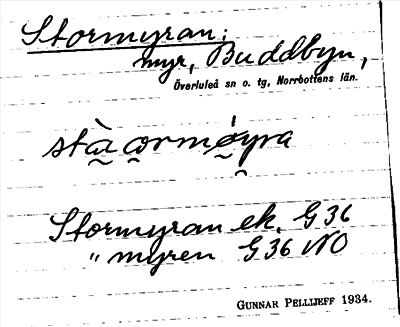 Stormyran;
myr, Buddbyn,
Överluleå sn o. tg, Norrbottens län.
stà̰a̰rmø̰y̯ra
Stormyran ek. G 36
" myren G 36 NO
GUNNAR PELLIJEFF 1934.